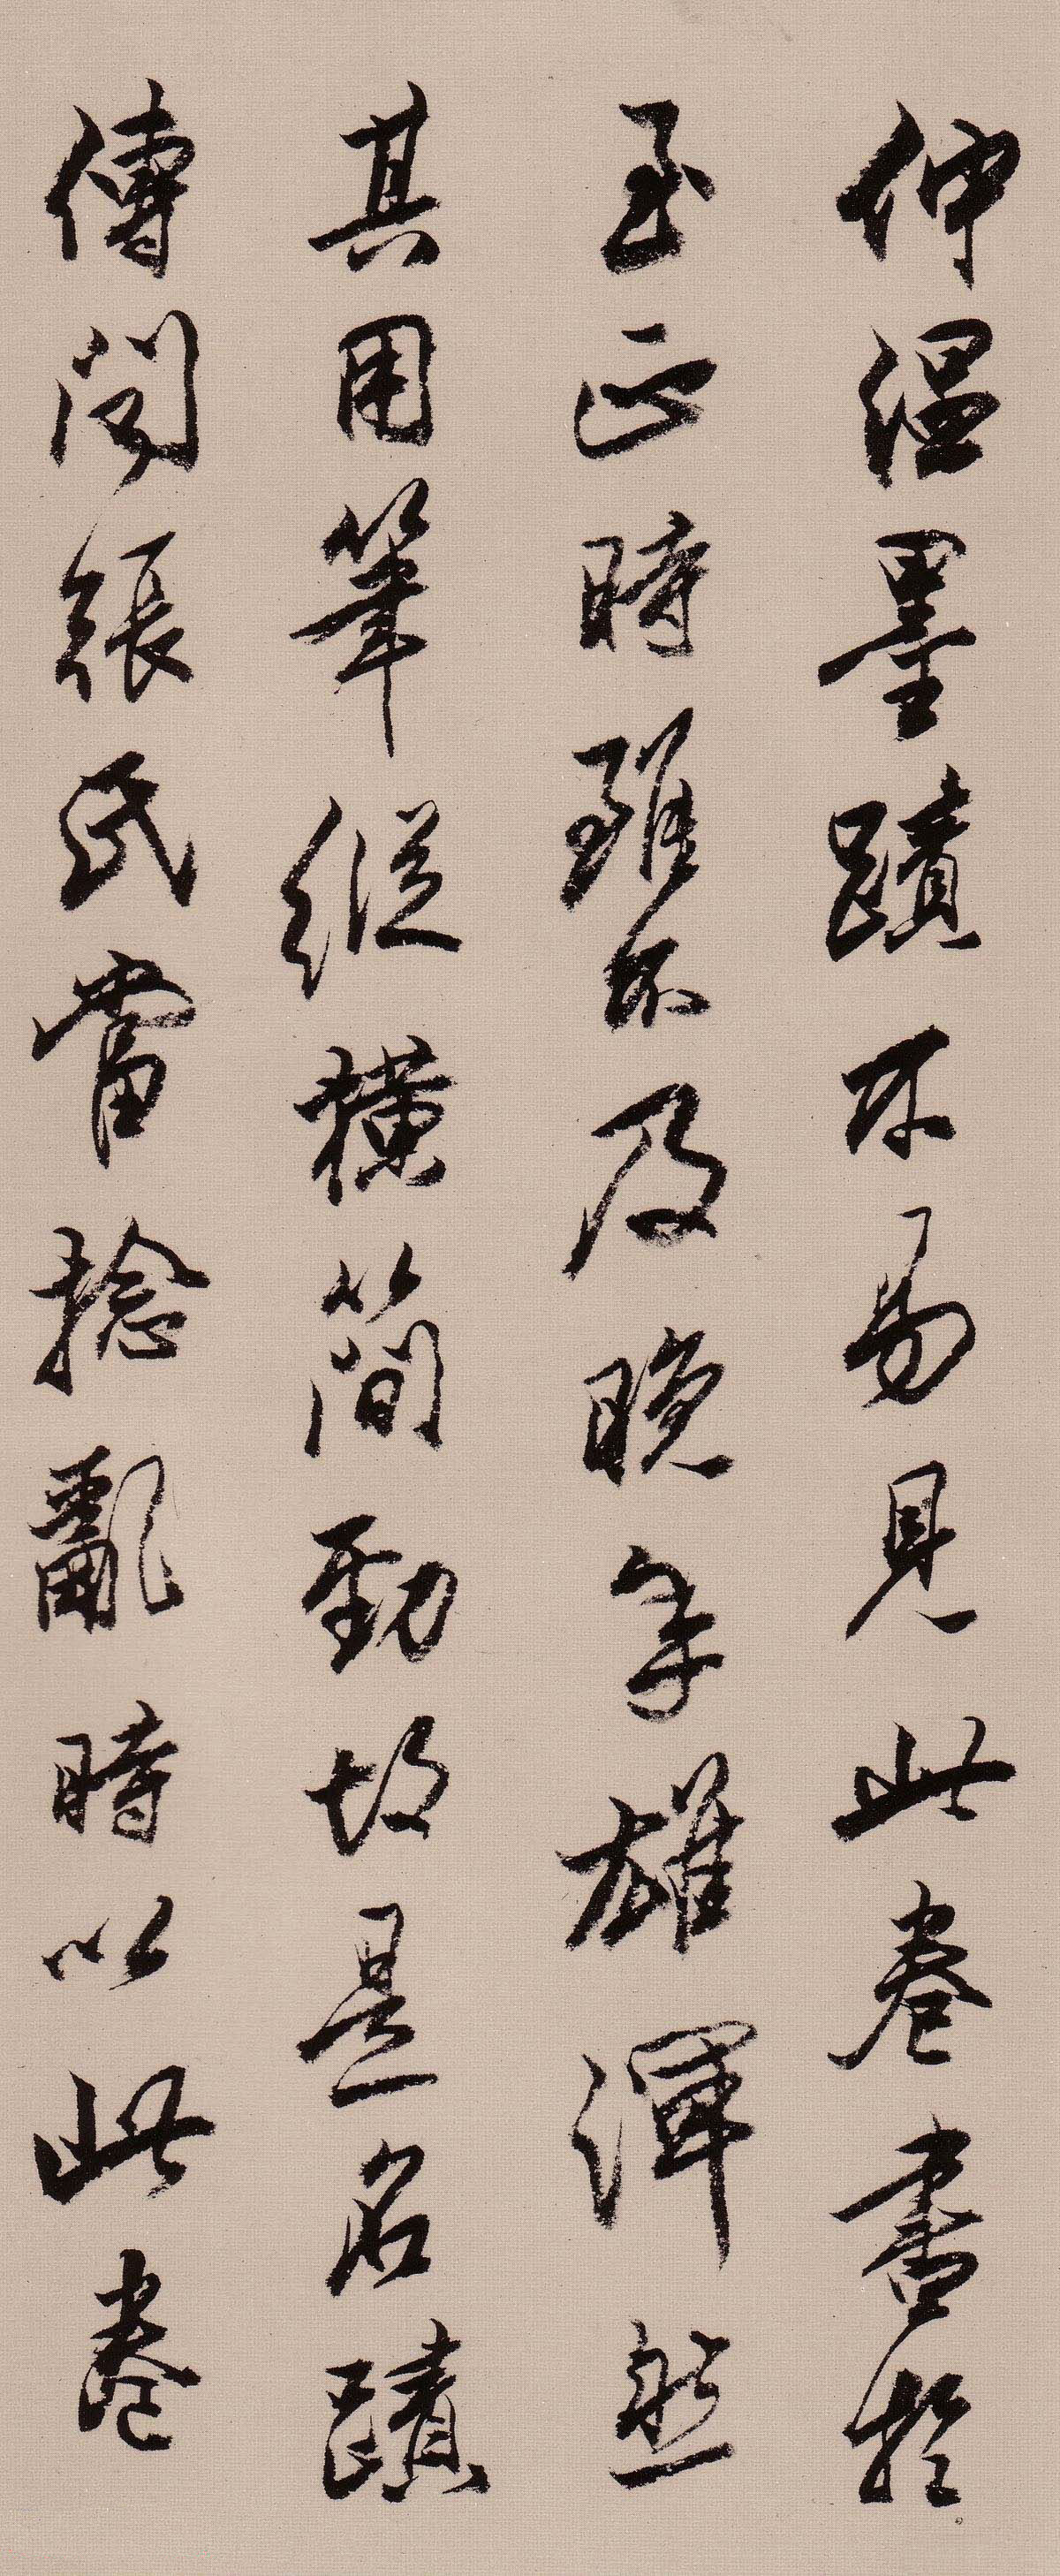 仲温墨蹟不易見此卷書於
至正時雖不及晚年雄渾然
其用筆縱橫簡勁故是名蹟
傳聞張氏當捻亂時以此卷